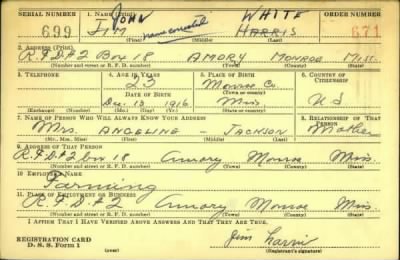 SERIAL NUMBER 1. NAME (Print) ORDER NUMBER
JOHN WHITE
699 JIM name corrected HARRIS 671
(First) (Middle) (Last)
2. ADDRESS (Print)
R.F.D #2 Box 18 AMORY MONROE MISS.
(Number and street or R. F. D. number) (Town) (County) (State)
3. TELEPHONE 4. AGE IN YEARS 5. PLACE OF BIRTH 6. COUNTRY OF CITIZENSHIP
23 Monroe Co.
DATE OF BIRTH
Dec. 13 1916 Miss U S
(Exchange) (Number) (Mo.) (Day) (Yr.) (State or country)
7. NAME OF PERSON WHO WILL ALWAYS KNOW YOUR ADDRESS 8. RELATIONSHIP OF THAT PERSON
Mrs. ANGELINE - JACKSON Mother
(Mr., Mrs., Miss) (First) (Middle) (Last)
9. ADDRESS OF THAT PERSON
R.F.D #2 Box 18 Amory Monroe Miss.
(Number and street or R. F. D. number) (Town) (County) (State)
10. EMPLOYER'S NAME
Farming
11. PLACE OF EMPLOYMENT OR BUSINESS
R.F.D. #2 Amory Monroe Miss.
(Number and street or R. F. D. number) (Town) (County) (State)
I AFFIRM THAT I HAVE VERIFIED ABOVE ANSWERS AND THAT THEY ARE TRUE.
REGISTRATION CARD
D. S. S. Form 1 (over) Jim Harris
(Registrant's signature)